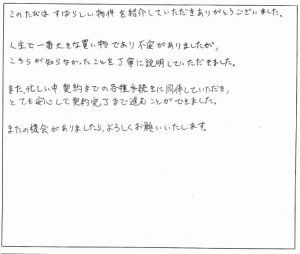 このたびは すばらしい物件を紹介していただきありがとうございました。
人生で一番大きな買い物であり不安がありましたが、
こちらが知らなかったことを丁寧に説明していただけました。
また、忙しい中 契約までの各種手続きに同伴していただき、
とても安心して契約完了まで進むことができました。
またの機会がありましたら、よろしくお願いいたします。